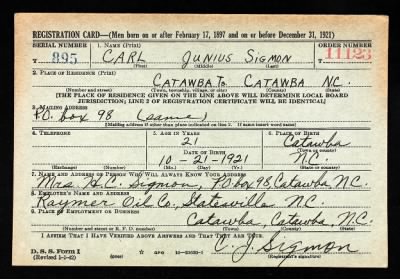 REGISTRATION CARD—(Men born on or after February 17, 1897 and on or before December 31, 1921)
SERIAL NUMBER 1. NAME (Print) ORDER NUMBER
T 895 CARL JUNIUS SIGMON 11123
(First) (Middle) (Last)
2. PLACE OF RESIDENCE (Print)
CATAWBA To. CATAWBA N.C.
(Number and street) (Town, township, village, or city) (County) (State)
[THE PLACE OF RESIDENCE GIVEN ON THE LINE ABOVE WILL DETERMINE LOCAL BOARD
JURISDICTION; LINE 2 OF REGISTRATION CERTIFICATE WILL BE IDENTICAL]
3. MAILING ADDRESS
P.O. box 98 (same)
[Mailing address if other than place indicated on line 2. If same insert word same]
4. TELEPHONE 5. AGE IN YEARS 6. PLACE OF BIRTH
21 Catawba
DATE OF BIRTH (Town or county)
10-21-1921 N.C.
(Exchange) (Number) (Mo.) (Day) (Yr.) (State or country)
7. NAME AND ADDRESS OF PERSON WHO WILL ALWAYS KNOW YOUR ADDRESS
Mrs H.C. Sigmon, PO box 98, Catawba, N.C.
8. EMPLOYER'S NAME AND ADDRESS
Raymer Oil Co., Statesville N.C.
9. PLACE OF EMPLOYMENT OR BUSINESS
Catawba, Catawba, N.C.
(Number and street or R. F. D. number) (Town) (County) (State)
I AFFIRM THAT I HAVE VERIFIED ABOVE ANSWERS AND THAT THEY ARE TRUE.
C. J. Sigmon
D. S. S. Form 1
(Revised 1-1-42) GPO (Registrant's signature)